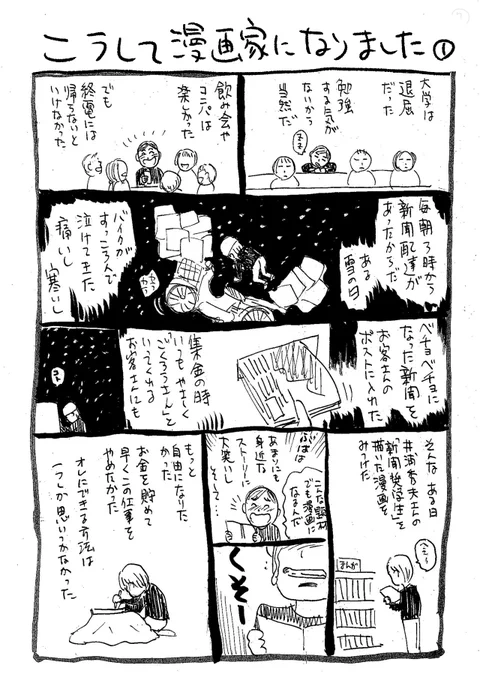 こうして漫画家になりました①
大学は
退屈
だった
勉強
する気が
ないから
当然だ
飲み会や
コンパは
楽しかった
でも
終電には
帰らないと
いけなかった
毎朝3時から
新聞配達が
あったからだ
ある
雪の日
バイクが
すっころんで
泣けてきた
痛いし
寒いし
ベチョベチョに
なった新聞を
お客さんの
ポストに入れた
集金の時
いつもやさしく
「ごくろうさん」と
いってくれる
お客さんにも
そんなある日
「新聞奨学生」を
描いた漫画を
みつけた
へえー
まんが
ぶはは
こんな題材
でも漫画に
なるんだ
あまりにも
身近な
ストーリーに
大笑いし
そして…
くそー
もっと
自由になりた
かった
お金を貯めて
早くこの仕事を
やめたかった
オレにできる方法は
一つしか思いつかなかった